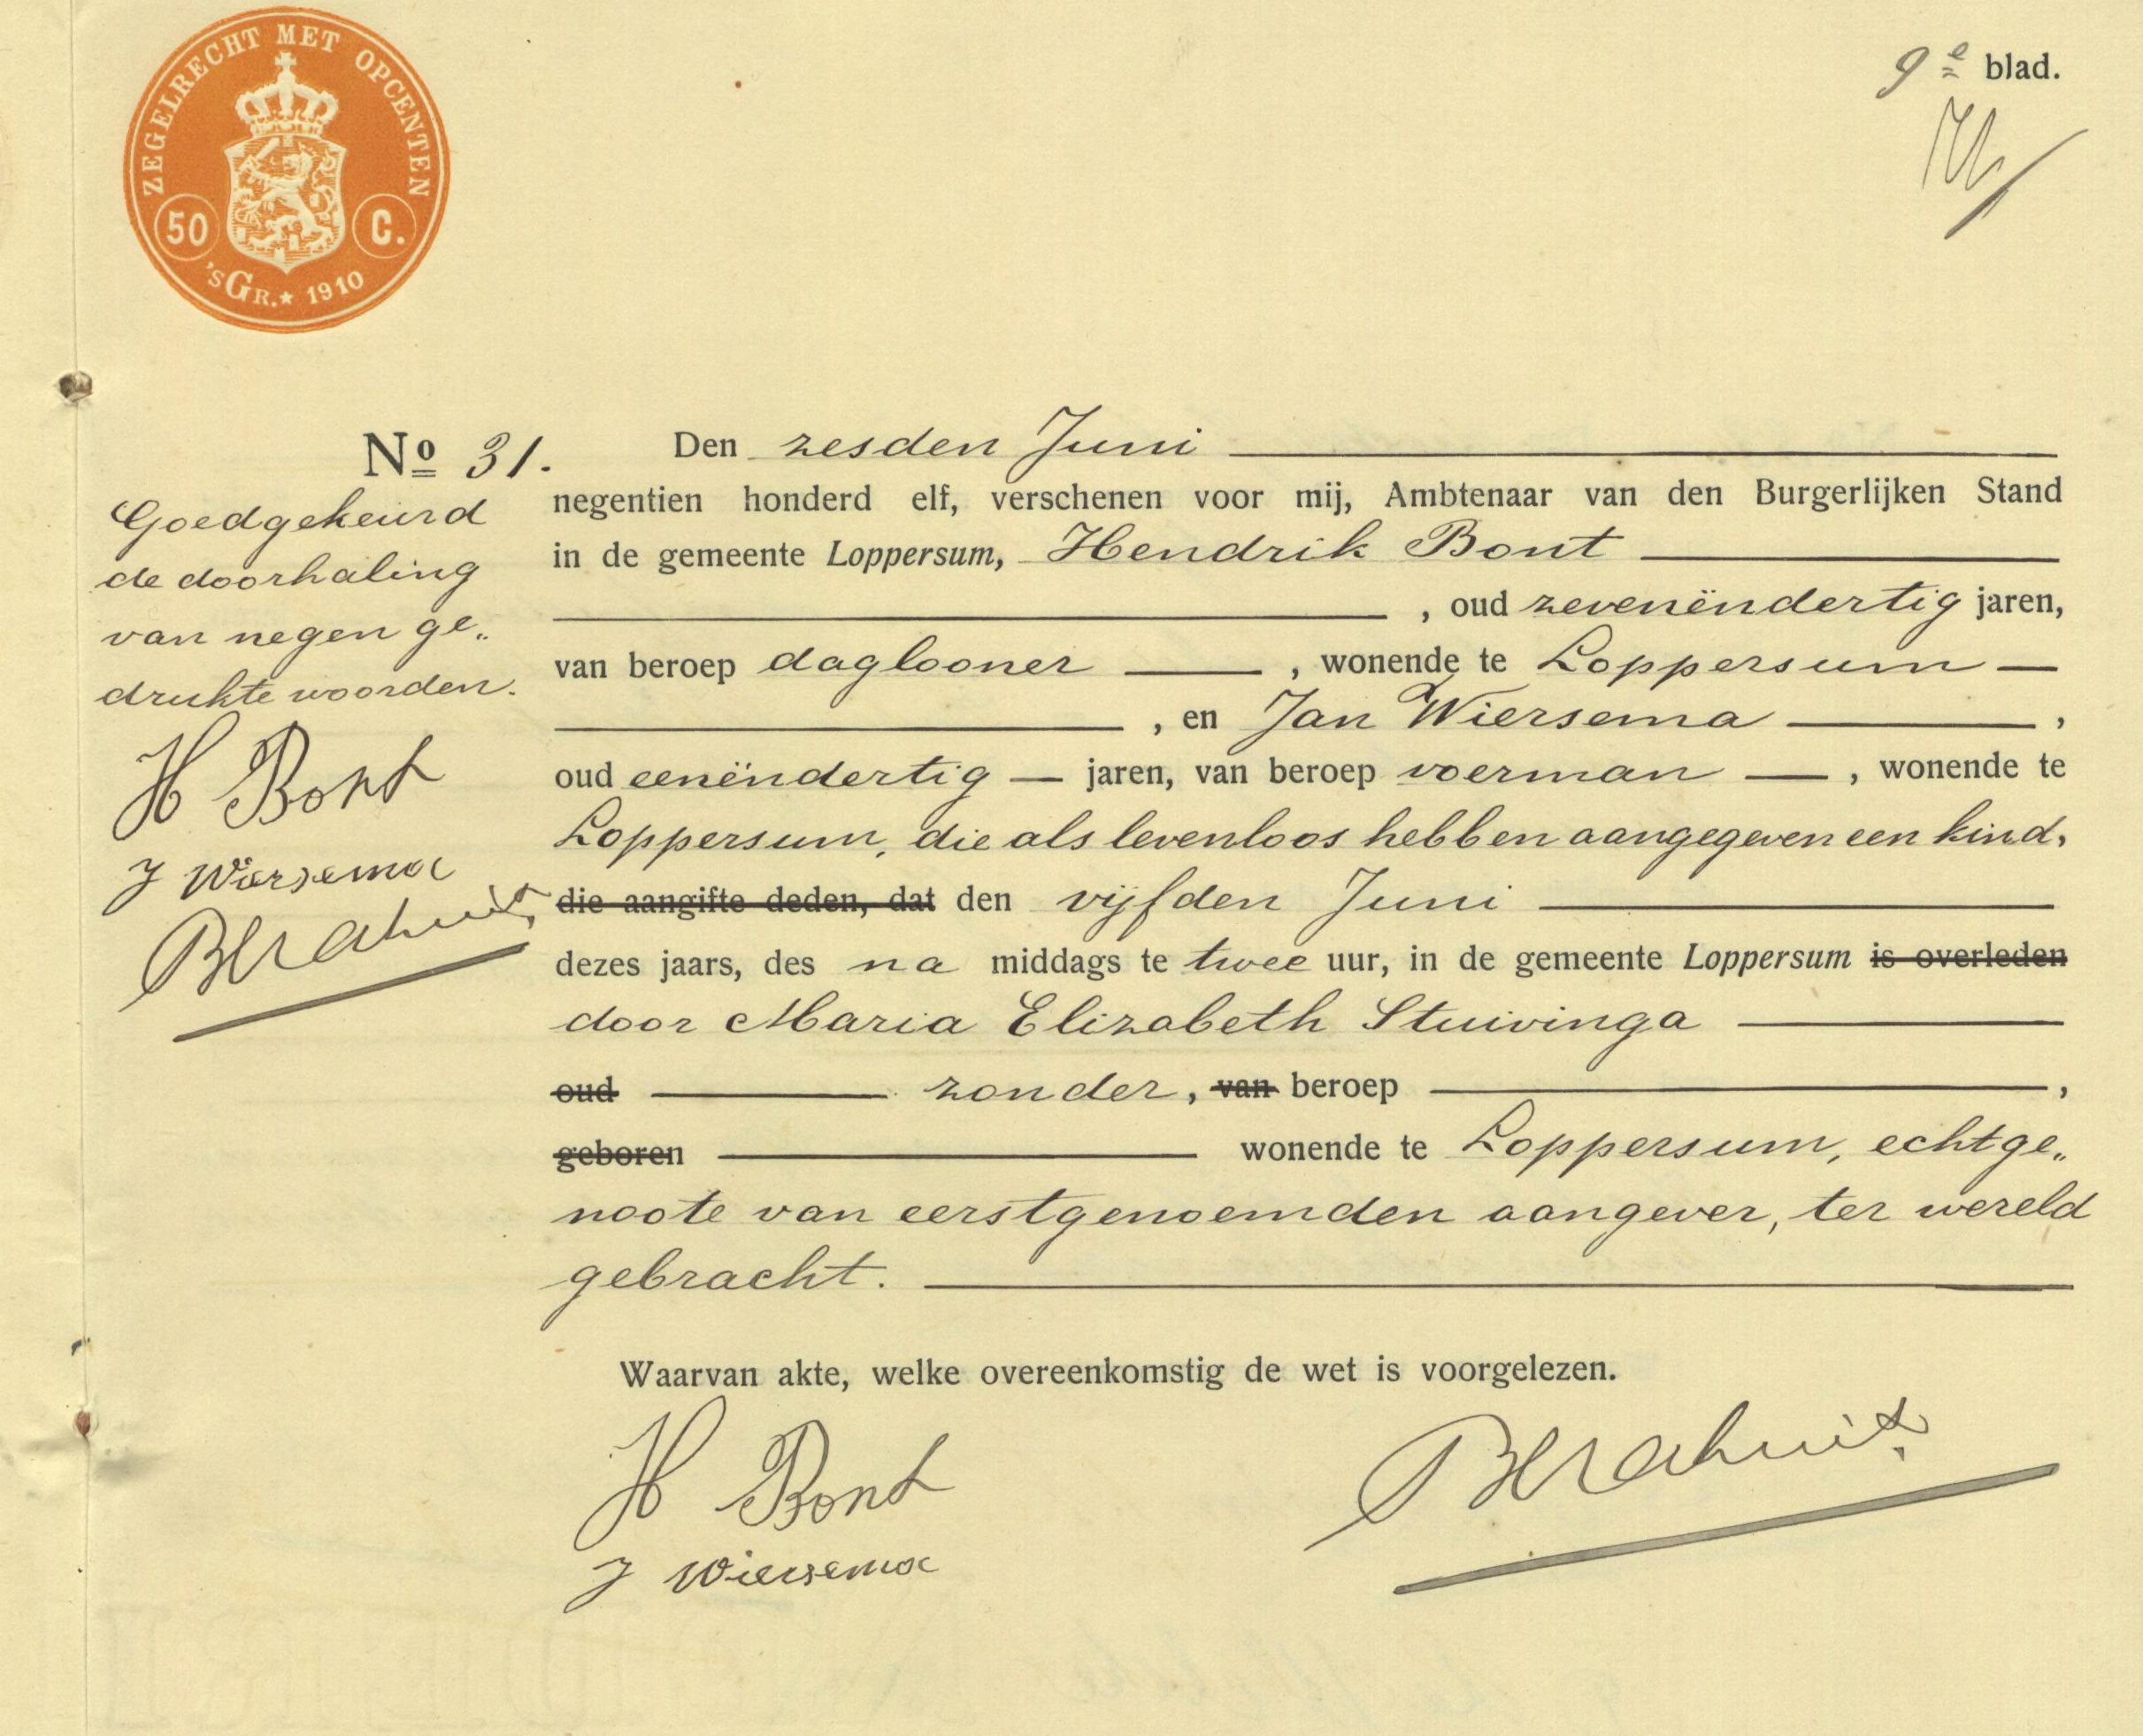 ZEGELRECHT MET OPCENTEN
50 C.
'sGR.★ 1910
9e blad.
No 31.
Goedgekeurd
de doorhaling
van negen ge„
drukte woorden.
H Bont
J Wiersema
Den zesden Juni
negentien honderd elf, verschenen voor mij, Ambtenaar van den Burgerlijken Stand
in de gemeente Loppersum, Hendrik Bont
, oud zevenëndertig jaren,
van beroep daglooner , wonende te Loppersum
, en Jan Wiersema ,
oud eenëndertig jaren, van beroep voerman , wonende te
Loppersum, die als levenloos hebben aangegeven een kind,
die aangifte deden, dat den vijfden Juni
dezes jaars, des na middags te twee uur, in de gemeente Loppersum is overleden
door Maria Elizabeth Stuivinga
oud zonder, van beroep ,
geboren wonende te Loppersum, echtge„
noote van eerstgenoemden aangever, ter wereld
gebracht.
Waarvan akte, welke overeenkomstig de wet is voorgelezen.
H Bont
J Wiersema